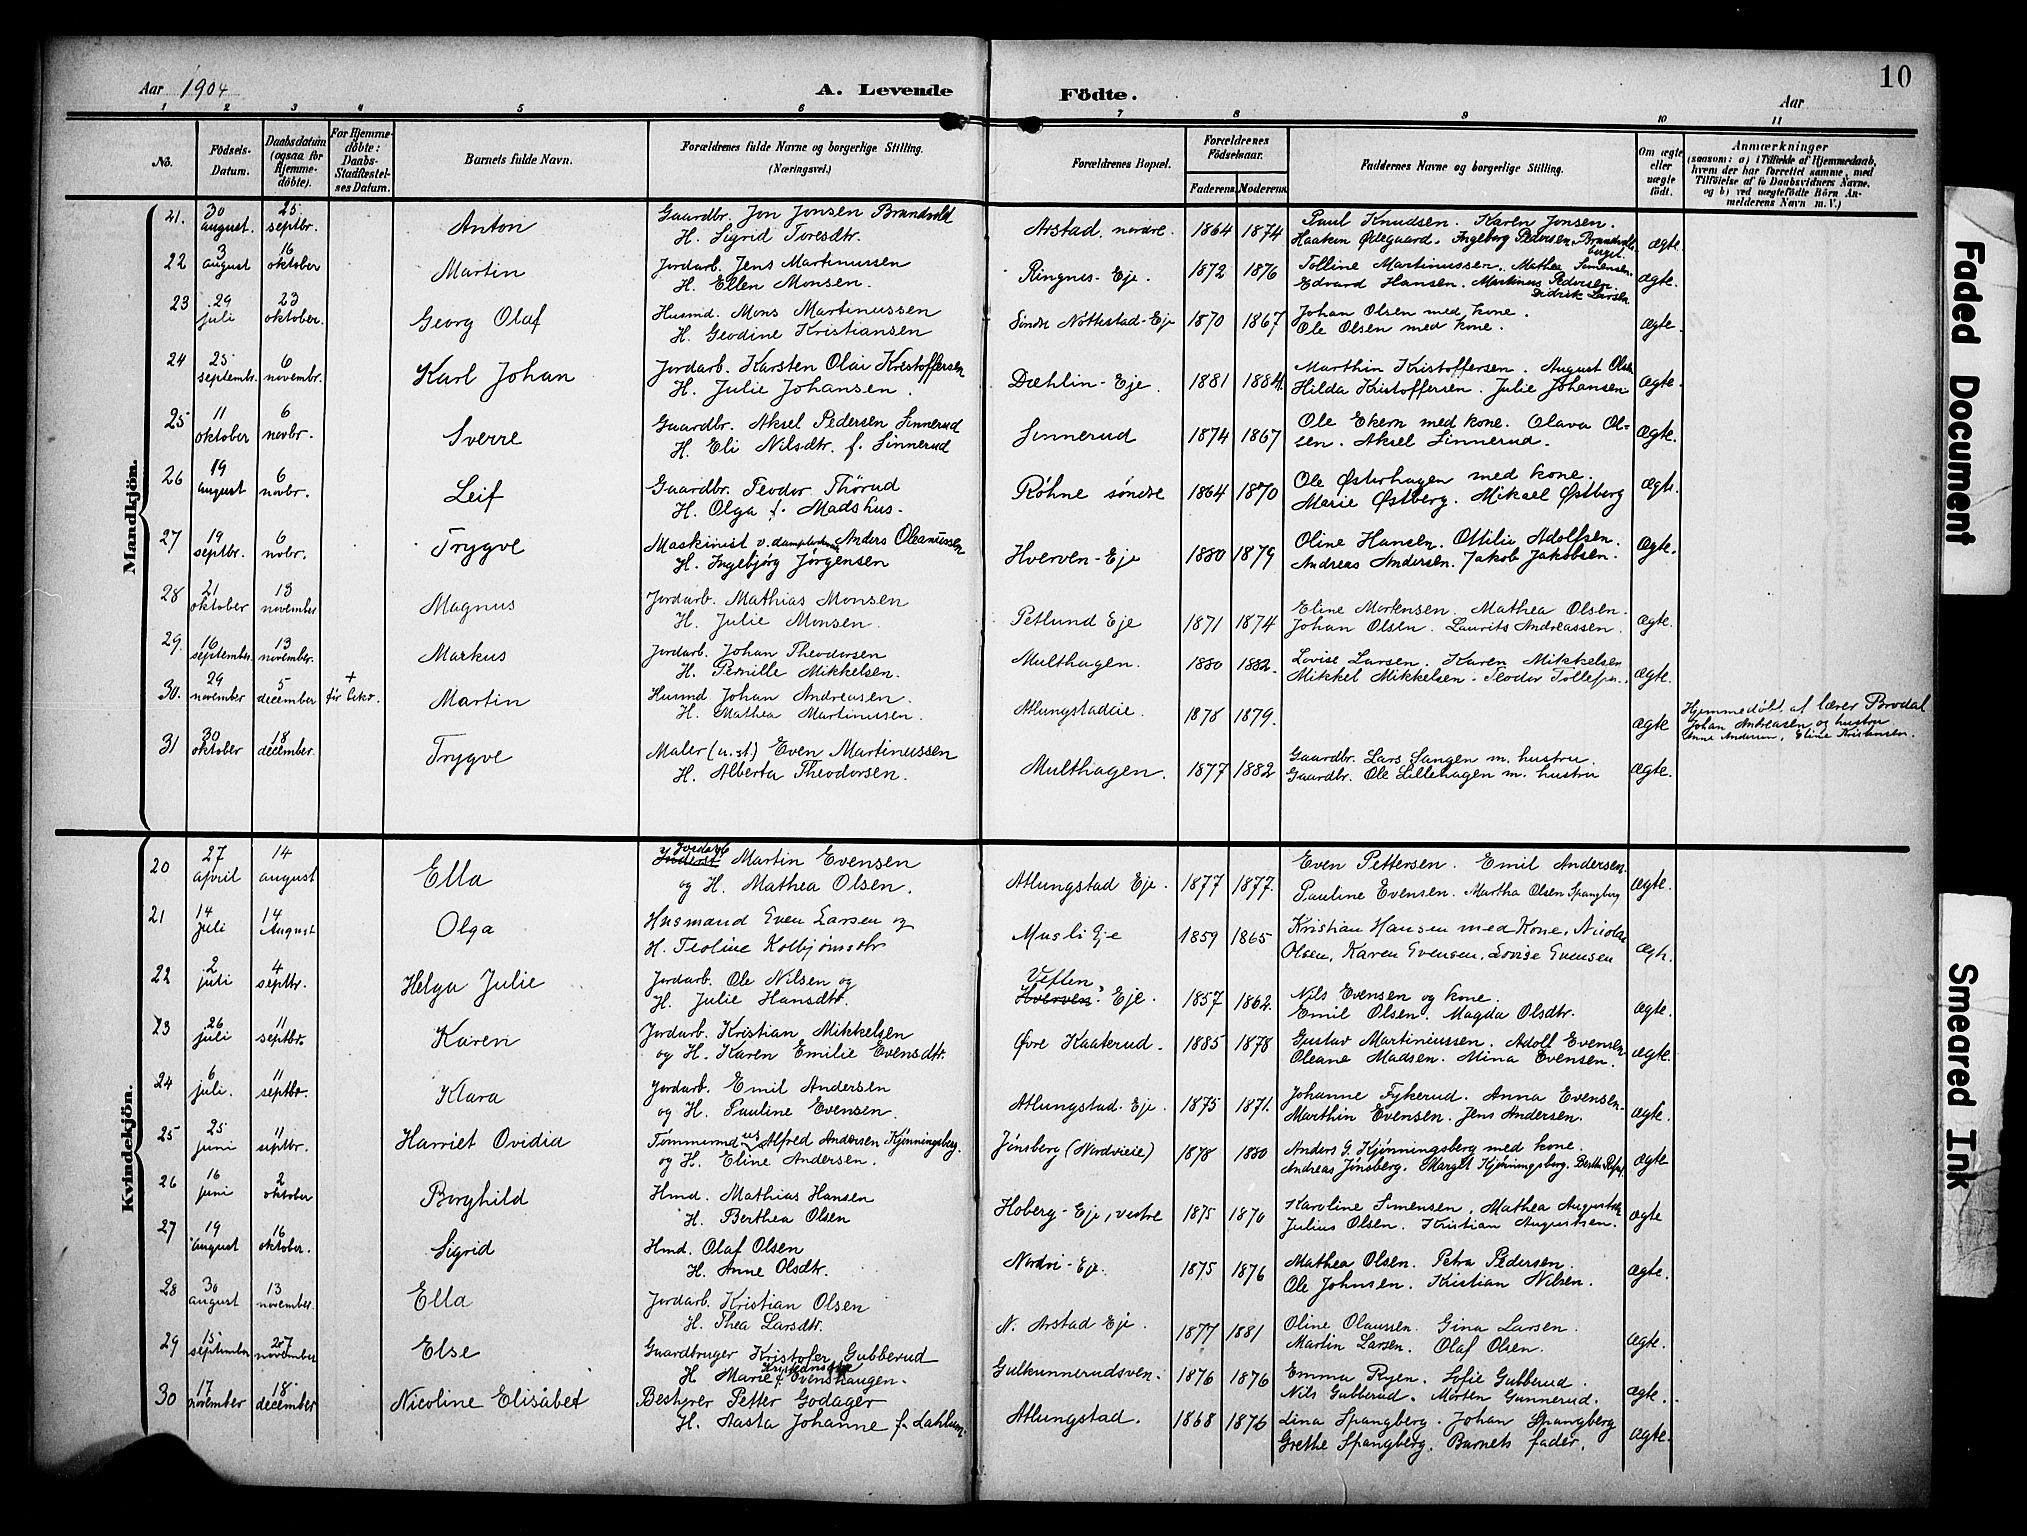 Aar 1904
A. Levende Födte.
Aar
10
1 2 3 4 5 6 7 8 9 10 11
No.
Födsels-Datum.
Daabsdatum (ogsaa for Hjemme-döbte).
For Hjemme-döbte: Daabs-Stadfæstel-ses Datum.
Barnets fulde Navn.
Forældrenes fulde Navne og borgerlige Stilling.
(Næringsvei.)
Forældrenes Bopæl.
Forældrenes Födselsaar.
Faderens. Moderens.
Faddernes Navne og borgerlige Stilling.
Om ægte eller uægte födt.
Anmærkninger
(saasom: a) i Tilfælde af Hjemmedaab,
hvem der har forrettet samme, med
Tilföielse af to Daabsvidners Navne,
og b) ved uægtefödte Börn An-
melderens Navn m. V.)
Mandkjön.
21. 30 august. 25 septbr. Anton Gaardbr. Jon Jonsen Brandvold Arstad, nordre. 1864 1874 Paul Knudsen. Karen Jonsen. Ægte.
H. Sigrid Toresdtr. Haaken Ødegaard. Ingeborg Pedersen, Brandvold-
berget.
22 3 august 16 oktober Martin Jordarb. Jens Martinussen Ringnes-Eje. 1872 1876 Tolline Martinussen. Mathea Simensen. Ægte.
H. Ellen Monsen. Edvard Hansen. Martinus Pedersen.
Didrik Larsen
23 29 juli 23 oktober. Georg Olaf Husmd. Mons Martinussen Søndre Nøttestad-Eje 1870 1867 Johan Olsen med kone. Ægte.
H. Geodine Kristiansen Ole Olsen med kone.
24 25 septembr. 6 novembr. Karl Johan Jordarb. Karsten Olai Kristoffersen Dæhlin-Eje. 1881 1884. Marthin Kristoffersen. August Olsen Ægte.
H. Julie Johansen. Hilda Kristoffersen. Julie Johansen
25 11 oktober 6 novbr. Sverre Gaardbr. Aksel Pedersen Sinnerud Sinnerud 1874 1867 Ole Ekern med kone. Olava Ol- Ægte.
H. Eli Nilsdtr. f. Sinnerud sen. Aksel Sinnerud.
26 19 august 6 novbr. Leif Gaardbr. Teodor Thorud Røhne søndre 1864 1870 Ole Østerhagen med kone. Ægte.
H. Olga f. Madshus. Marie Østberg. Mikael Østberg
27 19 septbr. 6 novbr. Trygve Maskinist v. Anders Oleanussen Hverven-Eje 1880 1879 Oline Hansen. Ottilie Adolfsen. Ægte.
H. Ingebjørg Jørgensen Andreas Andersen. Jakob Jakobsen.
28 21 oktober 13 november Magnus Jordarb. Mathias Monsen Petlund Eje 1871 1874 Eline Mortensen. Mathea Olsen. Ægte.
H. Julie Monsen. Johan Olsen. Laurits Andreassen.
29. 16 september 13 november. Markus Jordarb. Johan Theodorsen Multhagen. 1880 1882. Lovise Larsen. Karen Mikkelsen Ægte.
H. Pernille Mikkelsen. Mikkel Mikkelsen. Teodor
30. 29 november 5 december + før Martin Husmd Johan Andreasen. Atlungstadeie. 1878 1879. Ægte Hjemmedøbt af lærer Brodal
H. Mathea Martinusen. Johan Andreasen og hustru
Anne Andersen, Eline Kristensen.
31 30 oktober 18 december. Trygve Maler (u.st) Even Martinussen Multhagen. 1877 1882 Gaardbr. Lars Sangen m. hustru Ægte.
H. Alberta Theodorsen. Gaardbr. Ole Lillehagen m. hustru
Kvindekjön.
20 27 april 14 august Ella Inderst Jordarb Martin Evensen Atlungstad Eje. 1877 1877. Even Pettersen. Emil Andersen. Ægte.
og H. Mathea Olsen. Pauline Evensen. Martha Olsen Spangberg
21 14 juli 14 August Olga Husmand Even Larsen og Musli Eje 1859 1865 Kristian Hansen med Kone, Nicolai Ægt.
H. Teoline Kolbjørnsdtr Olsen, Karen Evensen, Lovise Evensen
22 2 juli 4 septbr. Helga Julie Jordarb. Ole Nilsen og Veflen Hverven-Eje. 1857 1862. Nils Evensen og kone. Ægte.
H. Julie Hansdtr. Emil Olsen. Magda Olsdtr.
23 26 juli 11 septbr. Karen Jordarb. Kristian Mikkelsen Øvre Kaaterud. 1885 1878 Gustav Martiniussen. Adolf Evensen Ægte.
og H. Karen Emilie Evensdtr. Oleane Madsen. Mina Evensen.
24 6 juli. 11 septbr. Klara Jordarb. Emil Andersen Atlungstad-Eje. 1875 1871. Johanne Fykerud. Anna Evensen. Ægte.
og H. Pauline Evensen. Marthin Evensen. Jens Andersen.
25 25 juni 11 septbr. Harriet Ovidia Tømmermd Alfred Andersen Kjønningsberg. Jønsberg (Nordvieie) 1878 1880 Anders G. Kjønningsberg med kone. Ægte
og H. Eline Andersen. Andreas Jønsberg. Margit Kjønningsberg. Berthe
26 16 juni 2 oktober Borghild Hmd. Mathias Hansen Hoberg-Eje, vestre 1875 1870 Karoline Simensen, Mathea Ægte
H. Berthea Olsen Julius Olsen. Kristian Augustsen.
27 19 august 16 oktober. Sigrid Hmd. Olaf Olsen Nordvi-Eje. 1875 1876 Mathea Olsen. Petra Pedersen. Ægte.
H. Anne Olsdtr. Ole Johnsen. Kristian Nilsen.
28 30 august 13 november. Ella Jordarb. Kristian Olsen N. Arstad Eje. 1877 1881 Oline Olaussen. Gina Larsen. Ægte.
H. Thea Larsdtr. Martin Larsen. Olaf Olsen.
29 15 september 27 november Else Gaardbruger Kristofer Gubberud 1876 1876 Emma Ryen. Sofie Gubberud. Ægte.
H Marie f. Evenshaugen. Nils Gubberud. Morten Gunnerud.
30 17 november 18 december Nicoline Elisabet Bestyrer Petter Godager Atlungstad. 1868 1876 Lina Spangberg. Johan Spangberg Ægte.
H. Aasta Johanne f. Dahlum. Grethe Spangberg. Barnets fader.
Faded Document
Smeared Ink